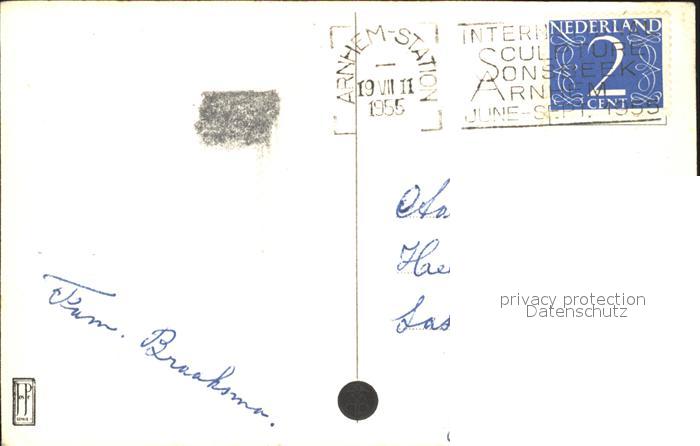 ARNHEM-STATION
19 VII 11
1955
INTERN
SCULPTURE
SONSBEEK
ARNHEM
JUNE-SEPT. 1955
NEDERLAND
2
CENT
Aa
Hae
Las
privacy protection
Datenschutz
Fam. Braaksma.